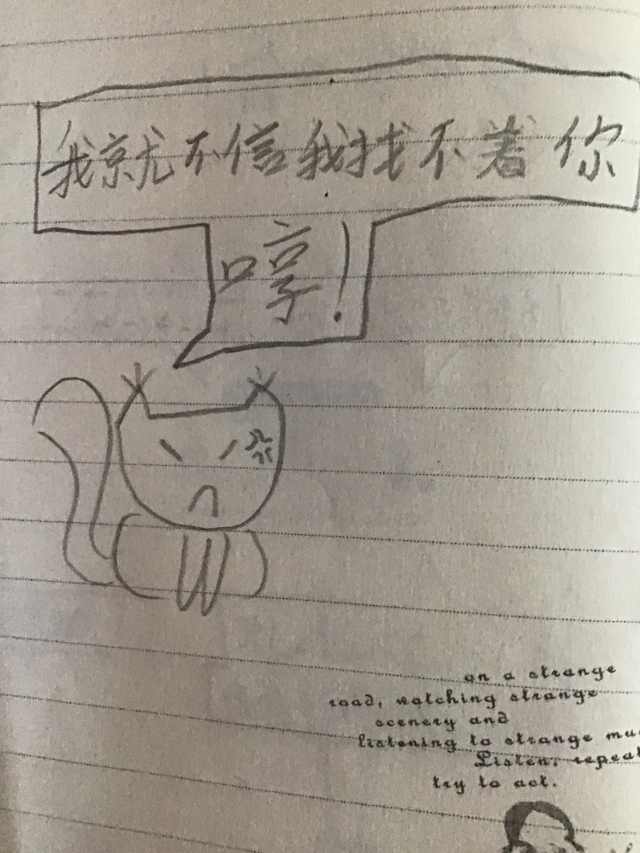 我就不信我找不着你
哼!
on a strange
road, watching strange
scenery and
listening to strange mu
Listen, repeat
try to act.